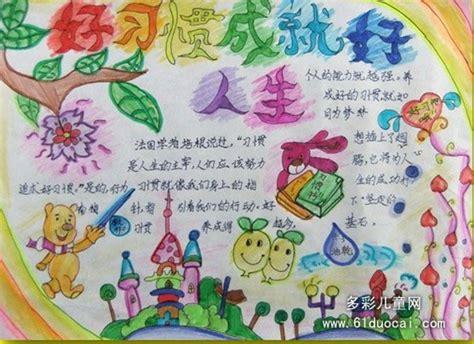 好习惯成就好
人生
法国学者培根说过，“习惯
是人生的主宰，人们应该努力
追求好习惯”是的，行为习惯就像我们身上的指
针，指引着我们的行动。好
习惯养成得越多，
个人的能力就越强。养
成好的习惯就如
同为梦
想插上了翅
膀，它将为人
生的成功打
下坚定的
基石。
多彩儿童网
www.61duocai.com